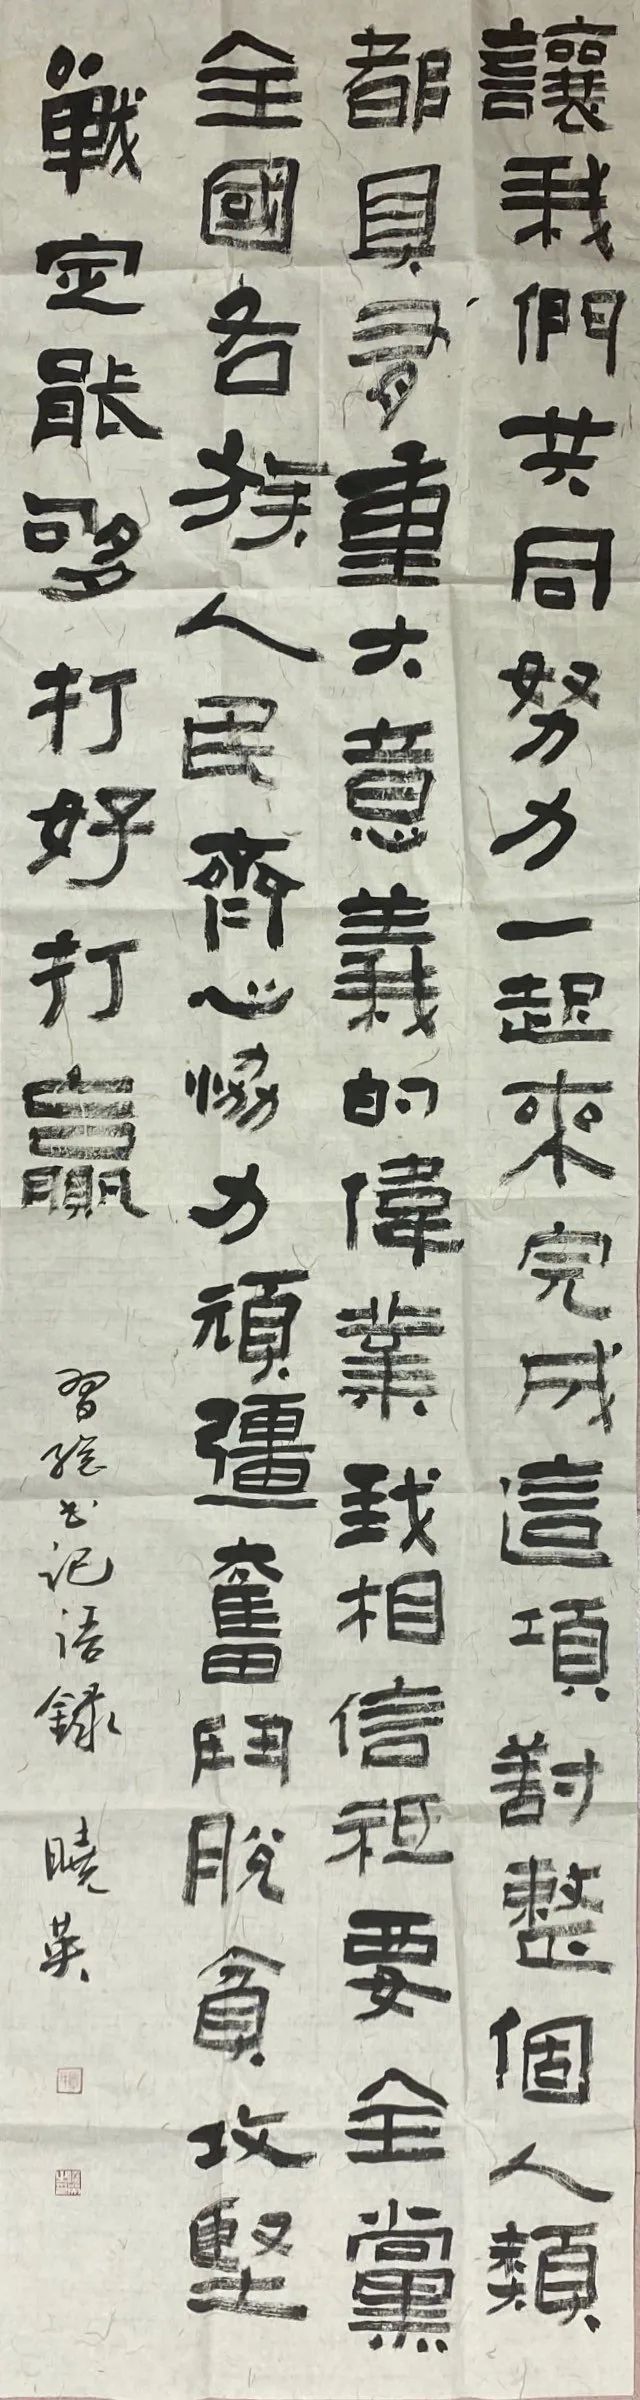 讓我們共同努力一起來完成這項對整個人類
都具有重大意義的偉業我相信祗要全黨
全國各族人民齊心協力頑彊奮鬥脫貧攻堅
戰定能够打好打贏
習總书记语録
曉英